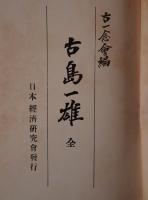 古一念會編
古島一雄
全
日本經濟研究會發行